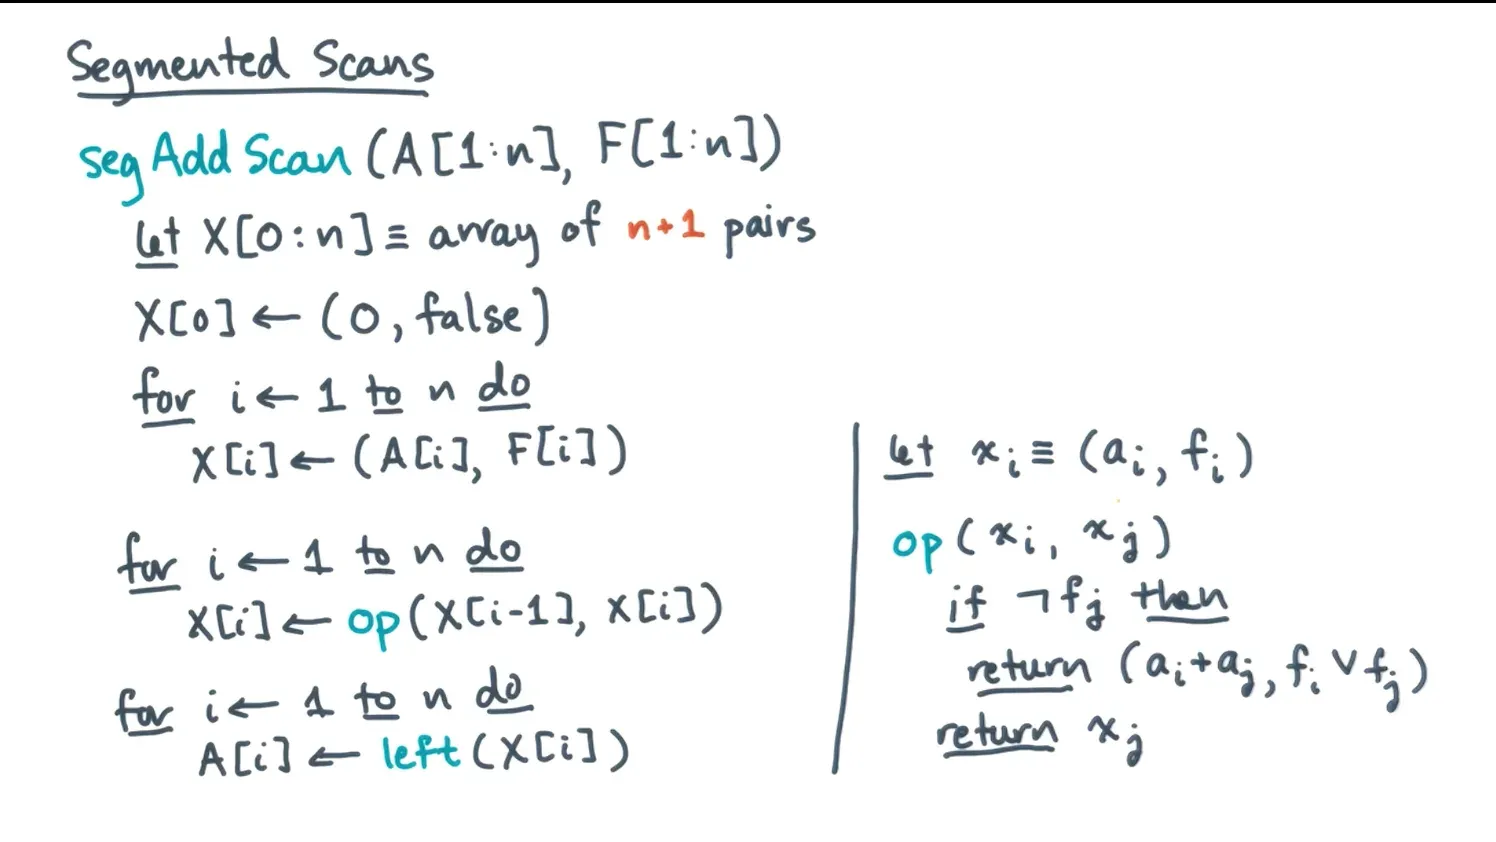 Segmented Scans
segAddScan (A[1:n], F[1:n])
let X[0:n] ≡ array of n+1 pairs
X[0] ← (0, false)
for i ← 1 to n do
X[i] ← (A[i], F[i])
for i ← 1 to n do
X[i] ← op(X[i-1], X[i])
for i ← 1 to n do
A[i] ← left(X[i])
let xᵢ ≡ (aᵢ, fᵢ)
op(xᵢ, xⱼ)
if ¬fⱼ then
return (aᵢ+aⱼ, fᵢ ∨ fⱼ)
return xⱼ